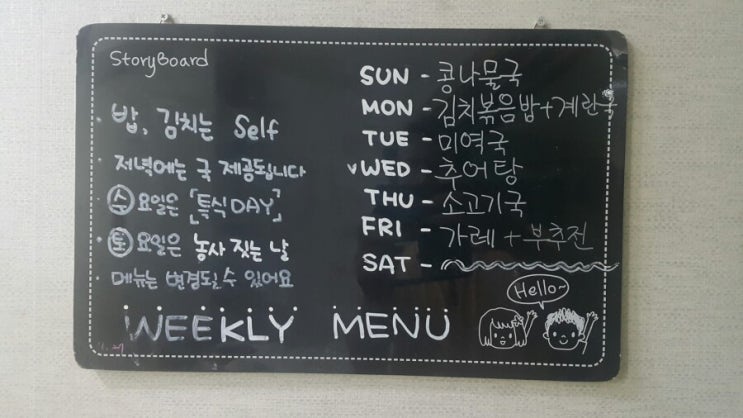 StoryBoard
· 밥, 김치는 Self
· 저녁에는 국 제공됩니다
· 수요일은 [특식 DAY]
· 토요일은 농사 짓는 날
· 메뉴는 변경될 수 있어요
SUN - 콩나물국
MON - 김치볶음밥+계란국
TUE - 미역국
✓WED - 추어탕
THU - 소고기국
FRI - 가레 + 부추전
SAT -
WEEKLY MENU
Hello~